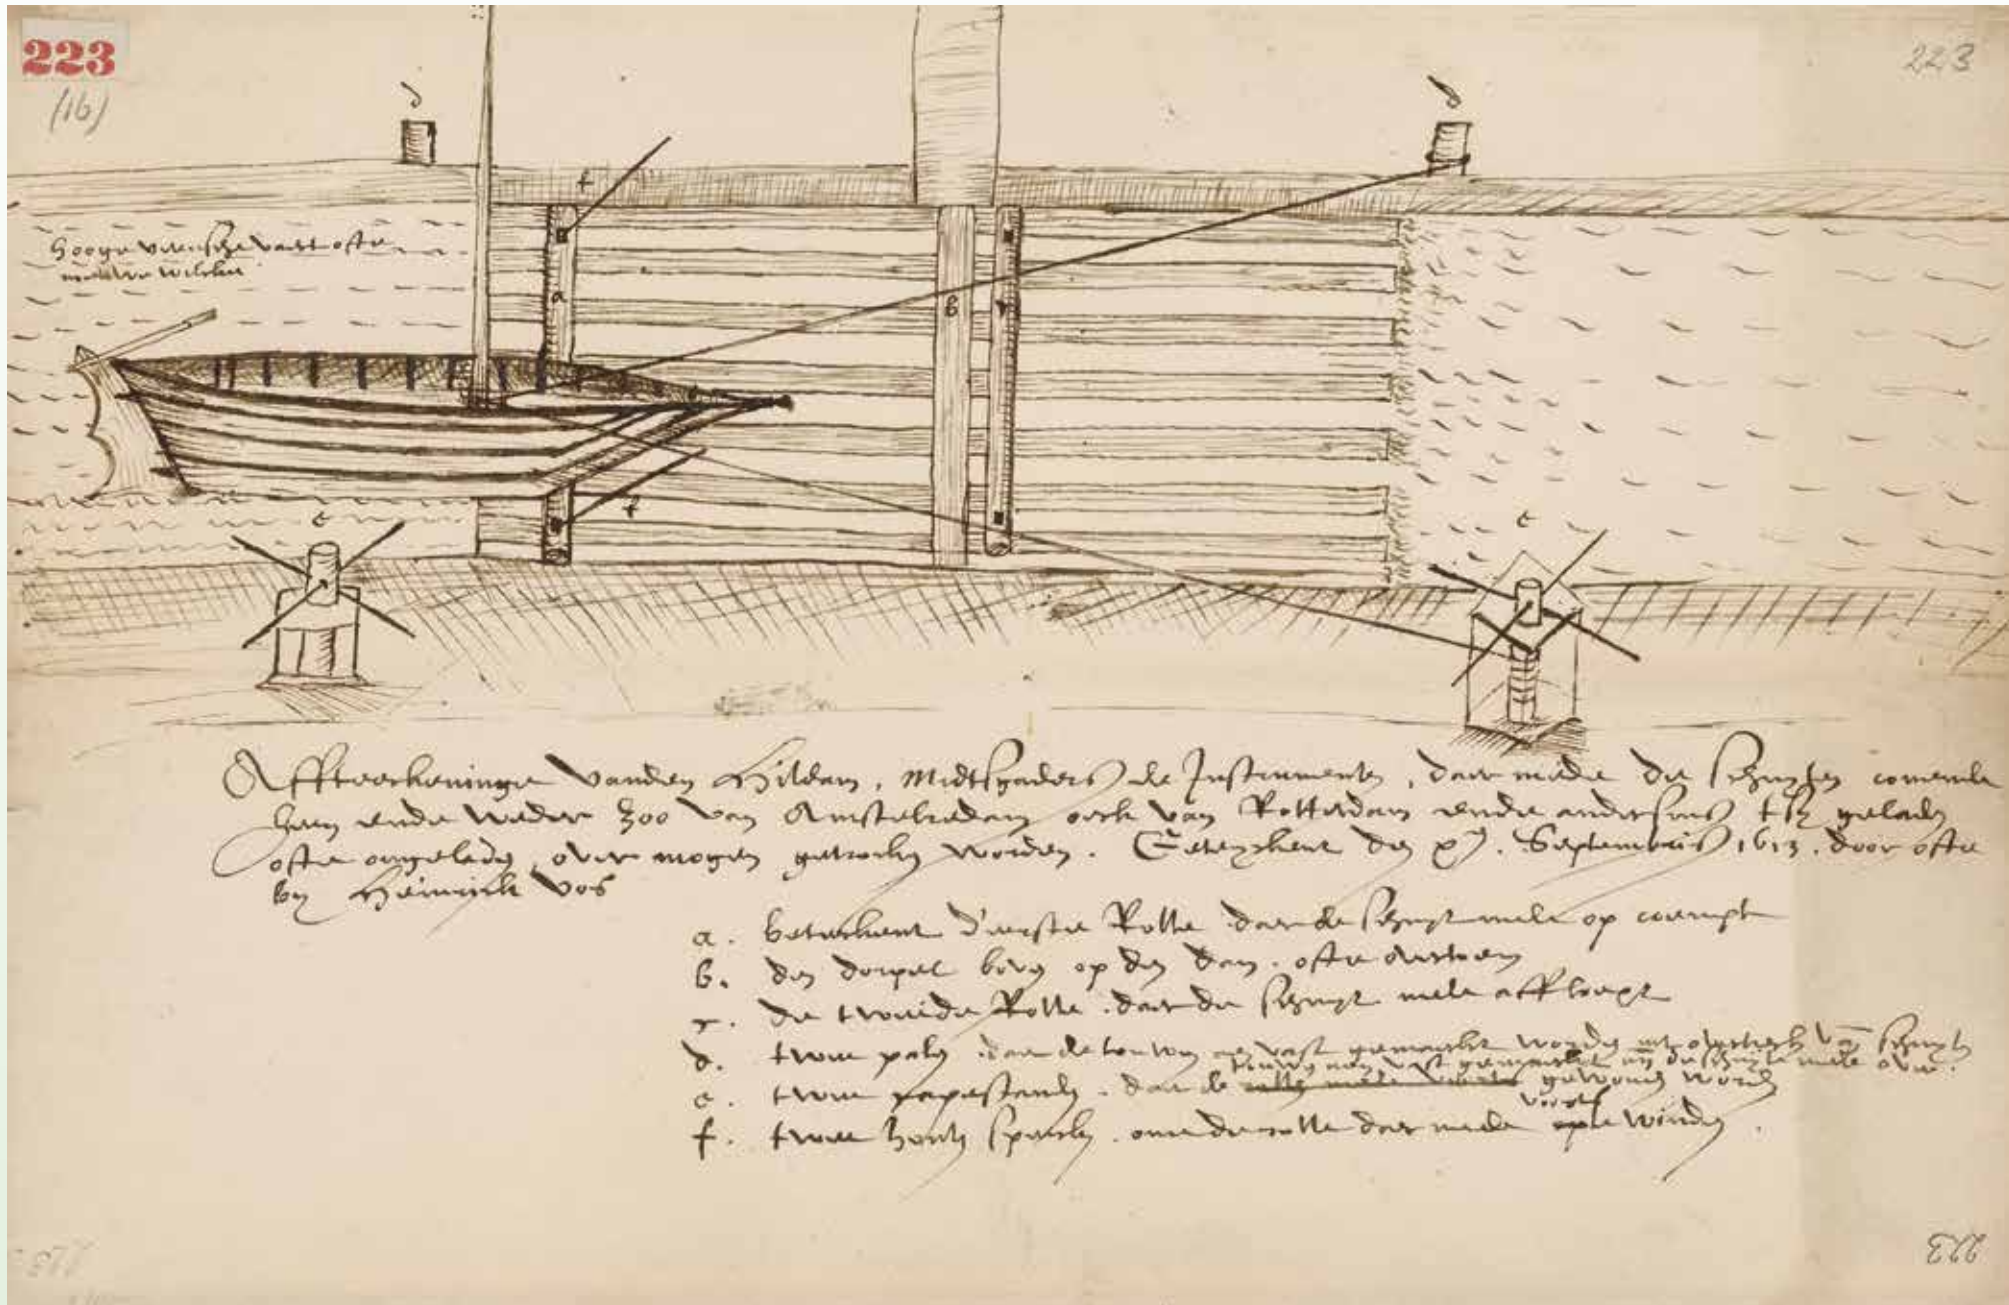 223
(16)
223
d
d
f
hooge vaert ofte
a
b
f
e
e
Affteeckeninge vanden Hildam, Midtsgaders de Instrumenten, daer mede de schuyten
heen ende weder zoo van Amstelredam oock van Rotterdam ende anderssins tsy gelade
ofte ongelade over mogen getrocken worden. Geteyckent den Septembris 1613. door ofte
by Heinrick Vos
a. beteekent d'eerste Rolle daer de schuyt mede op coempt
b. den dorpel boven op den dam ofte overtoem
c. de tweede Rolle daer de schuyt mede aff loept
d. twee palen daer de touwen aen vast gemaeckt worden van
touwen aen vast gemaeckt de schuyte mede over
e. twee capestanden daer de gewonden worden
voorts
f. twee houten om de rolle daer mede te winden
223
223